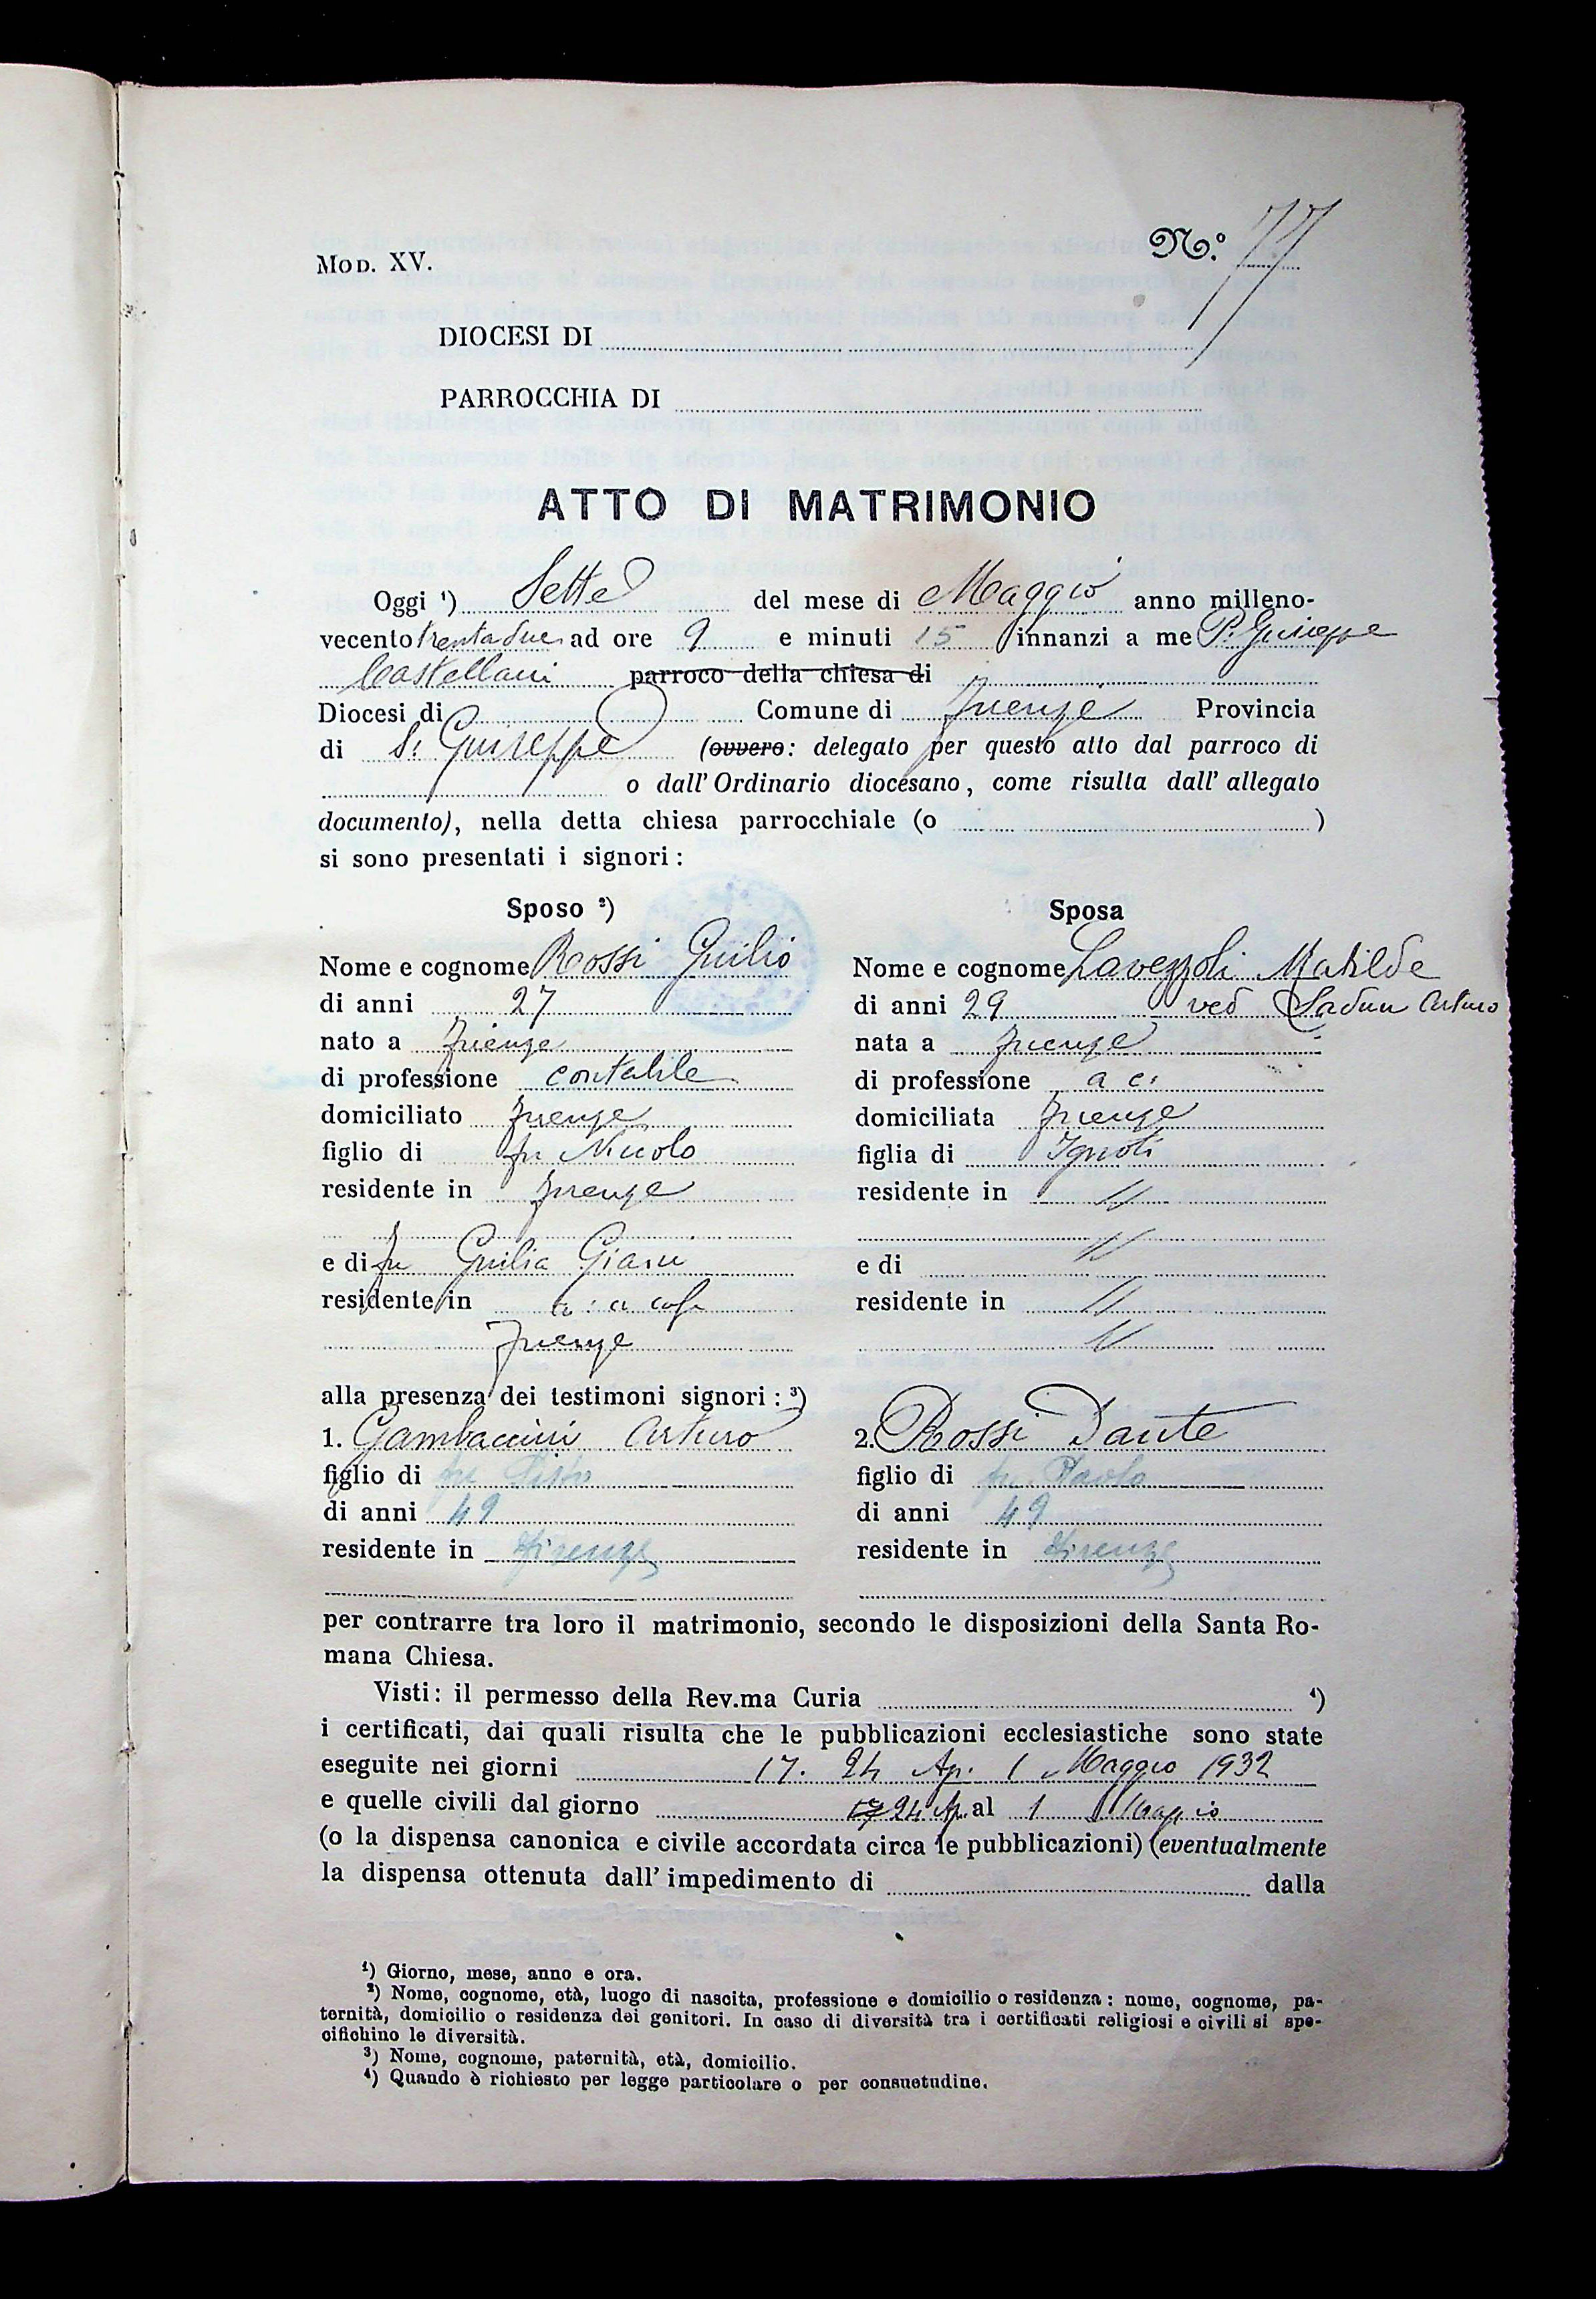 Mod. XV.
N.º 77
DIOCESI DI
PARROCCHIA DI
ATTO DI MATRIMONIO
Oggi ¹) Sette del mese di Maggio anno milleno-
vecento trentadue ad ore 9 e minuti 15 innanzi a me P. Giuseppe
Castellani parroco della chiesa di
Diocesi di Comune di Firenze Provincia
di S. Giuseppe (ovvero: delegato per questo atto dal parroco di
o dall'Ordinario diocesano, come risulta dall'allegato
documento), nella detta chiesa parrocchiale (o )
si sono presentati i signori:
Sposo ²)
Nome e cognome Rossi Giulio
di anni 27
nato a Firenze
di professione contabile
domiciliato Firenze
figlio di fu Niccolo
residente in Firenze
e di fu Giulia Giani
residente in a casa
Firenze
Sposa
Nome e cognome Lavezzoli Matilde
di anni 29 ved Sadun Arturo
nata a Firenze
di professione a c.
domiciliata Firenze
figlia di Ignoti
residente in //
//
e di
residente in //
//
alla presenza dei testimoni signori: ³)
1. Gambaccini Arturo
figlio di fu
di anni 49
residente in Firenze
2. Rossi Dante
figlio di fu Paolo
di anni 49
residente in Firenze
per contrarre tra loro il matrimonio, secondo le disposizioni della Santa Ro-
mana Chiesa.
Visti: il permesso della Rev.ma Curia ⁴)
i certificati, dai quali risulta che le pubblicazioni ecclesiastiche sono state
eseguite nei giorni 17. 24 Ap. 1 Maggio 1932
e quelle civili dal giorno 24 Ap. al 1 Maggio
(o la dispensa canonica e civile accordata circa le pubblicazioni) (eventualmente
la dispensa ottenuta dall'impedimento di dalla
¹) Giorno, mese, anno e ora.
²) Nome, cognome, età, luogo di nascita, professione e domicilio o residenza: nome, cognome, pa-
ternità, domicilio o residenza dei genitori. In caso di diversità tra i certificati religiosi e civili si spe-
cifichino le diversità.
³) Nome, cognome, paternità, età, domicilio.
⁴) Quando è richiesto per legge particolare o per consuetudine.